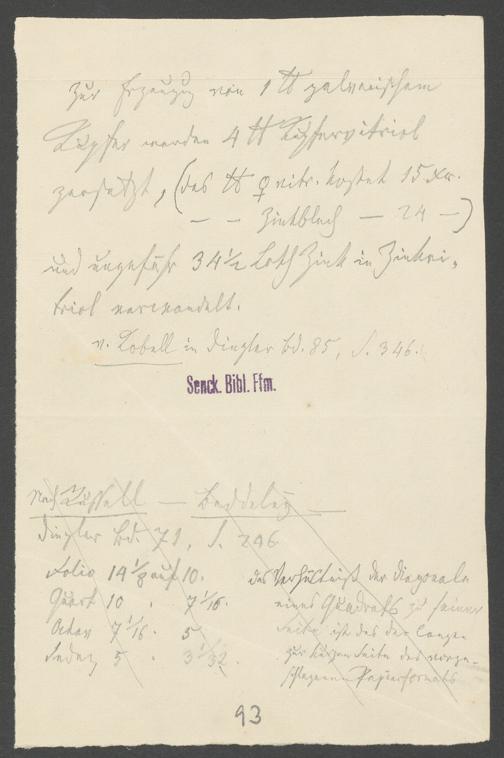 Zur Erzeugung von 1 ℔ galvanischem
Kupfer werden 4 ℔ Kupfervitriol
zersetzt, (das ℔ ♀ vitr. kostet 15 xr.
— — Zinkblech — 24 —)
und ungefähr 34 1/2 Loth Zink in Zinkvi-
triol verwandelt.
v. Kobell in Dingler Bd. 85, S. 346.
Senck. Bibl. Ffm.
Nach — Baddeley —
Dingler Bd. 71, S. 246
Folio 14 1/8 auf 10.
Quart 10 . 7 1/16.
Octav 7 1/16 . 5
Sedez 5 . 3 1/32.
das Verhältniß der Diagonale
eines Quadrats zu seiner
Seite ist das der langen
zur kurzen Seite des vorge-
schlagenen Papierformats
93